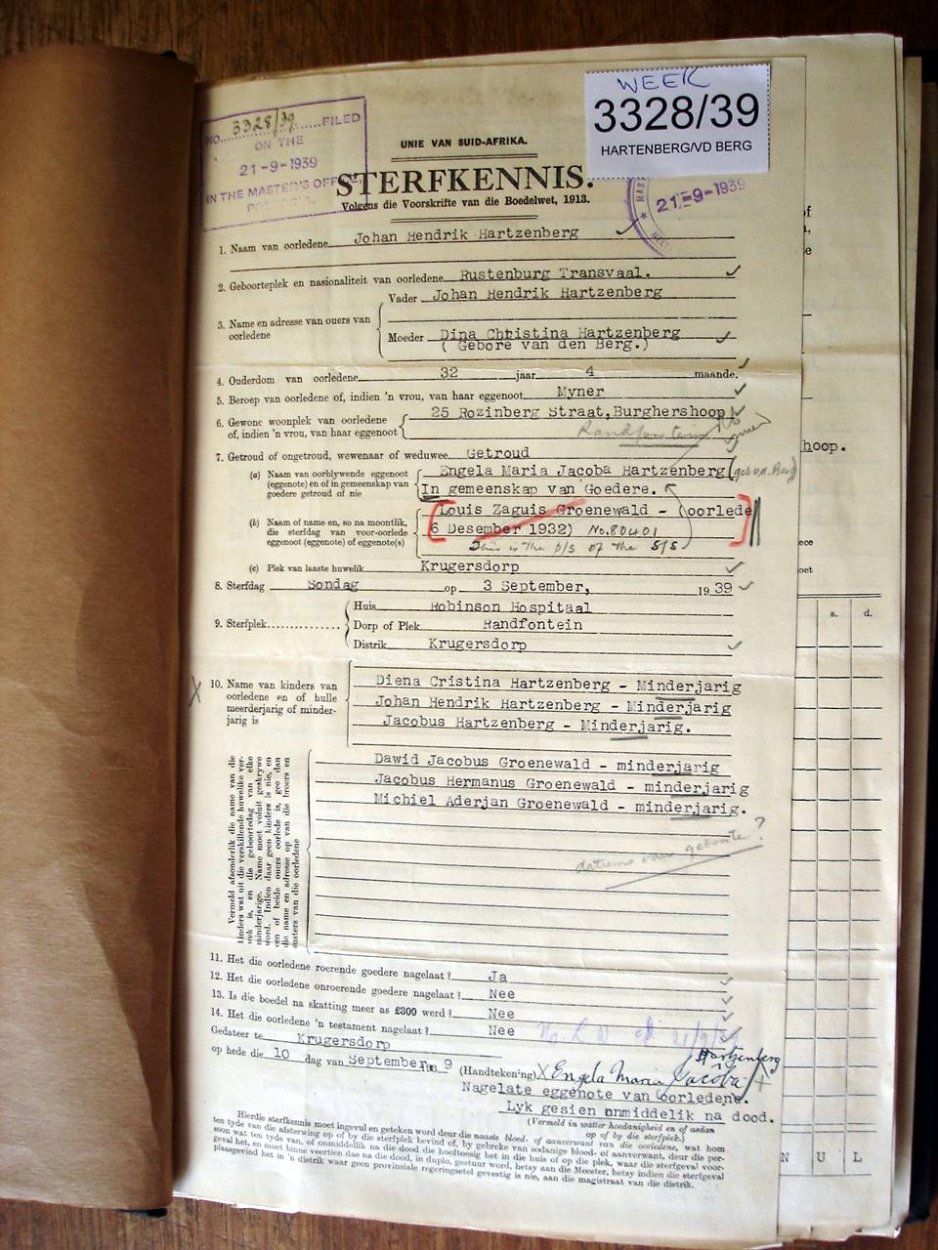 WEEK
3328/39
HARTENBERG/VD BERG
NO. 3328/39 FILED
ON THE
21-9-1939
IN THE MASTER'S OFFICE
21-9-1939
UNIE VAN SUID-AFRIKA.
STERFKENNIS.
Volgens die Voorskrifte van die Boedelwet, 1913.
1. Naam van oorledene Johan Hendrik Hartzenberg
2. Geboorteplek en nasionaliteit van oorledene Rustenburg Transvaal.
Vader Johan Hendrik Hartzenberg
3. Name en adresse van ouers van oorledene
Moeder Dina Christina Hartzenberg
( Gebore van den Berg.)
4. Ouderdom van oorledene 32 jaar 4 maande.
5. Beroep van oorledene of, indien 'n vrou, van haar eggenoot Myner
6. Gewone woonplek van oorledene of, indien 'n vrou, van haar eggenoot 25 Rozinberg Straat, Burghershoop
Randfontein
7. Getroud of ongetroud, wewenaar of weduwee Getroud
(a) Naam van oorblywende eggenoot (eggenote) en of in gemeenskap van goedere getroud of nie
Engela Maria Jacoba Hartzenberg (geb v.d. Berg)
In gemeenskap van Goedere.
(b) Naam of name en, so na moontlik, die sterfdag van voor-oorlede eggenoot (eggenote) of eggenote(s)
Louis Zaguis Groenewald - (oorlede
6 Desember 1932) No. 80401
This is the p/s of the S/S
(c) Plek van laaste huwelik Krugersdorp
8. Sterfdag Sondag op 3 September, 1939
Huis Robinson Hospitaal
9. Sterfplek Dorp of Plek Randfontein
Distrik Krugersdorp
10. Name van kinders van oorledene en of hulle meerderjarig of minderjarig is
Diena Cristina Hartzenberg - Minderjarig
Johan Hendrik Hartzenberg - Minderjarig
Jacobus Hartzenberg - Minderjarig.
Vermeld afsonderlik die name van die
kinders wat uit die verskillende huwelike verwek is, en die geboortedag van elke
minderjarige. Name moet voluit geskrywe
word. Indien daar geen kinders is nie, en
een of beide ouers oorlede is, gee dan
die name en adresse op van die broers en
susters van die oorledene
Dawid Jacobus Groenewald - minderjarig
Jacobus Hermanus Groenewald - minderjarig
Michiel Aderjan Groenewald - minderjarig.
datums van geboorte?
11. Het die oorledene roerende goedere nagelaat? Ja
12. Het die oorledene onroerende goedere nagelaat? Nee
13. Is die boedel na skatting meer as £300 werd? Nee
14. Het die oorledene 'n testament nagelaat? Nee
Gedateer te Krugersdorp
op hede die 10 dag van September, 9
(Handtekening) X Engela Maria Jacoba Hartzenberg
Nagelate eggenote van oorledene.
Lyk gesien onmiddelik na dood.
(Vermeld in watter hoedanigheid en of andan
op of by die sterfplek.)
Hierdie sterfkennis moet ingevul en geteken word deur die naaste bloed- of aanverwant van die oorledene, wat
ten tyde van die afsterwing op of by die sterfplek bevind
hoop.
s. d.
N U L